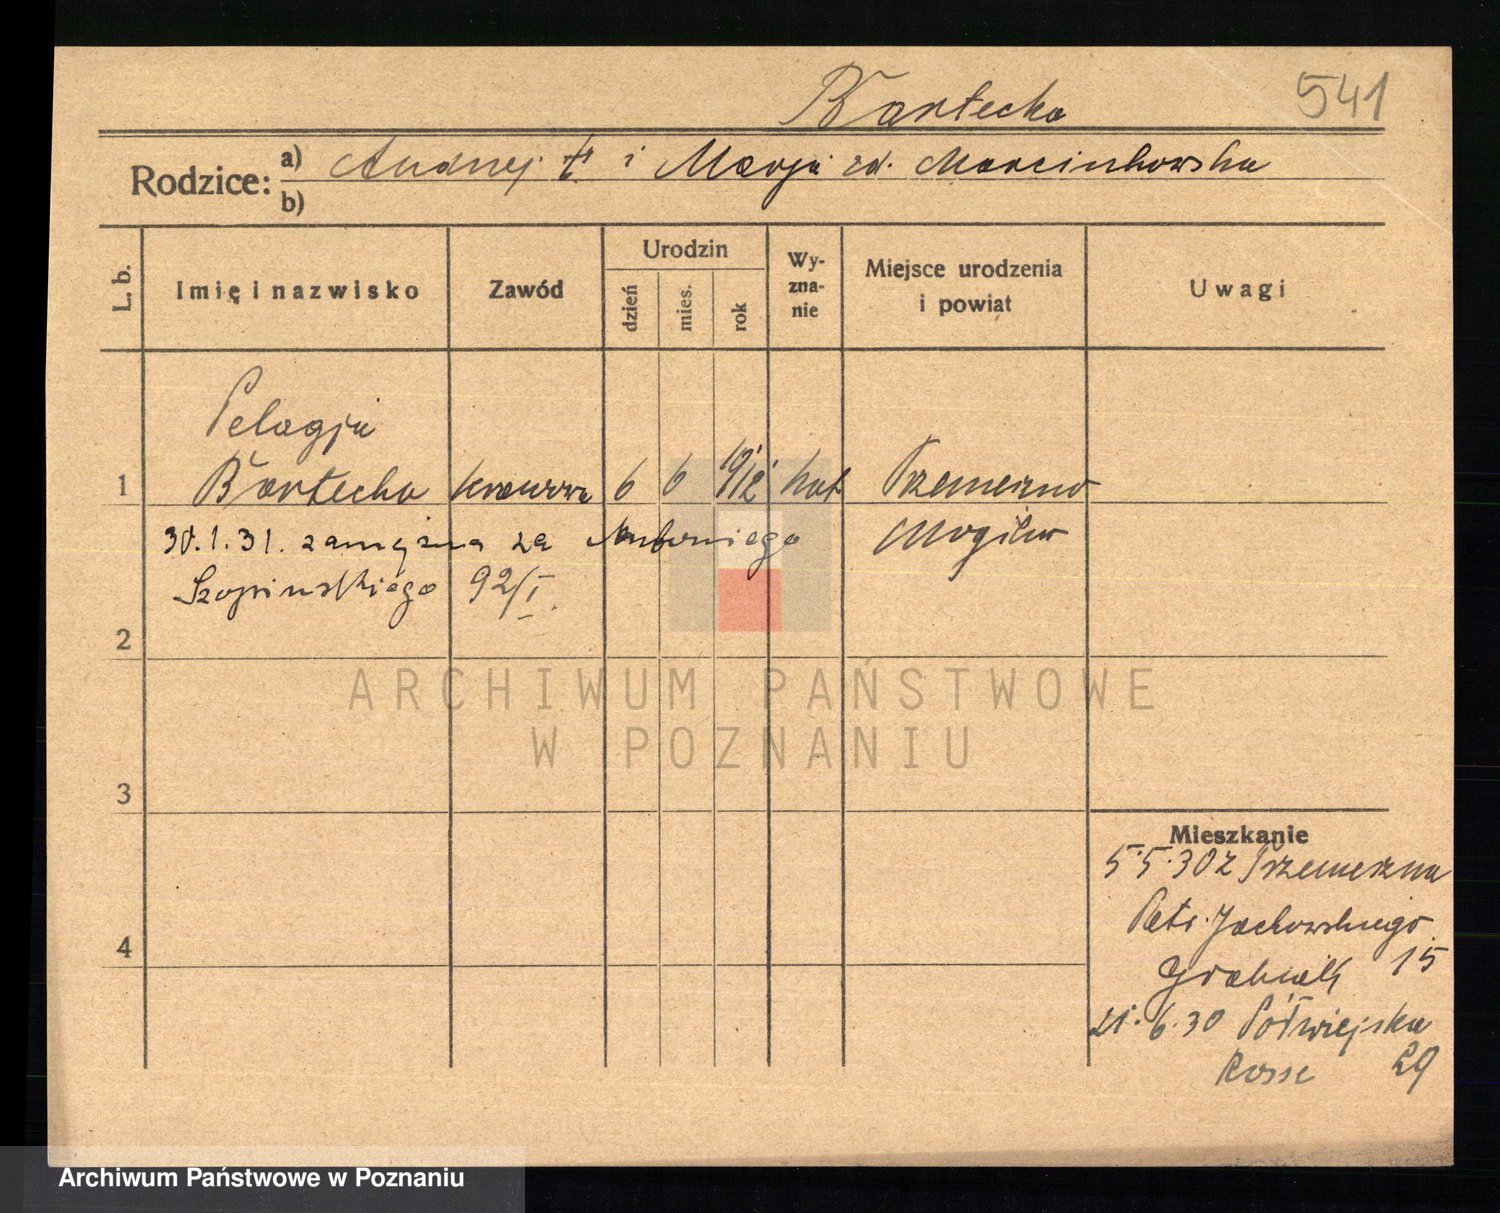 Bartecka 541
Rodzice: a) Andrzej † i Marja zd. Marcinkowska
b)
L. b. Imię i nazwisko Zawód Urodzin dzień mies. rok Wyznanie Miejsce urodzenia i powiat Uwagi
Pelagja
1 Bartecka krawcowa 6 6 1912 kat Trzemeszno
30.1.31. zamężna za Antoniego Mogilno
Szopińskiego 92/I.
2
ARCHIWUM PAŃSTWOWE
W POZNANIU
3
Mieszkanie
5.5.30 z Trzemeszna
Jackowskiego
4 15
21.6.30 Półwiejska
Rosse 29
Archiwum Państwowe w Poznaniu